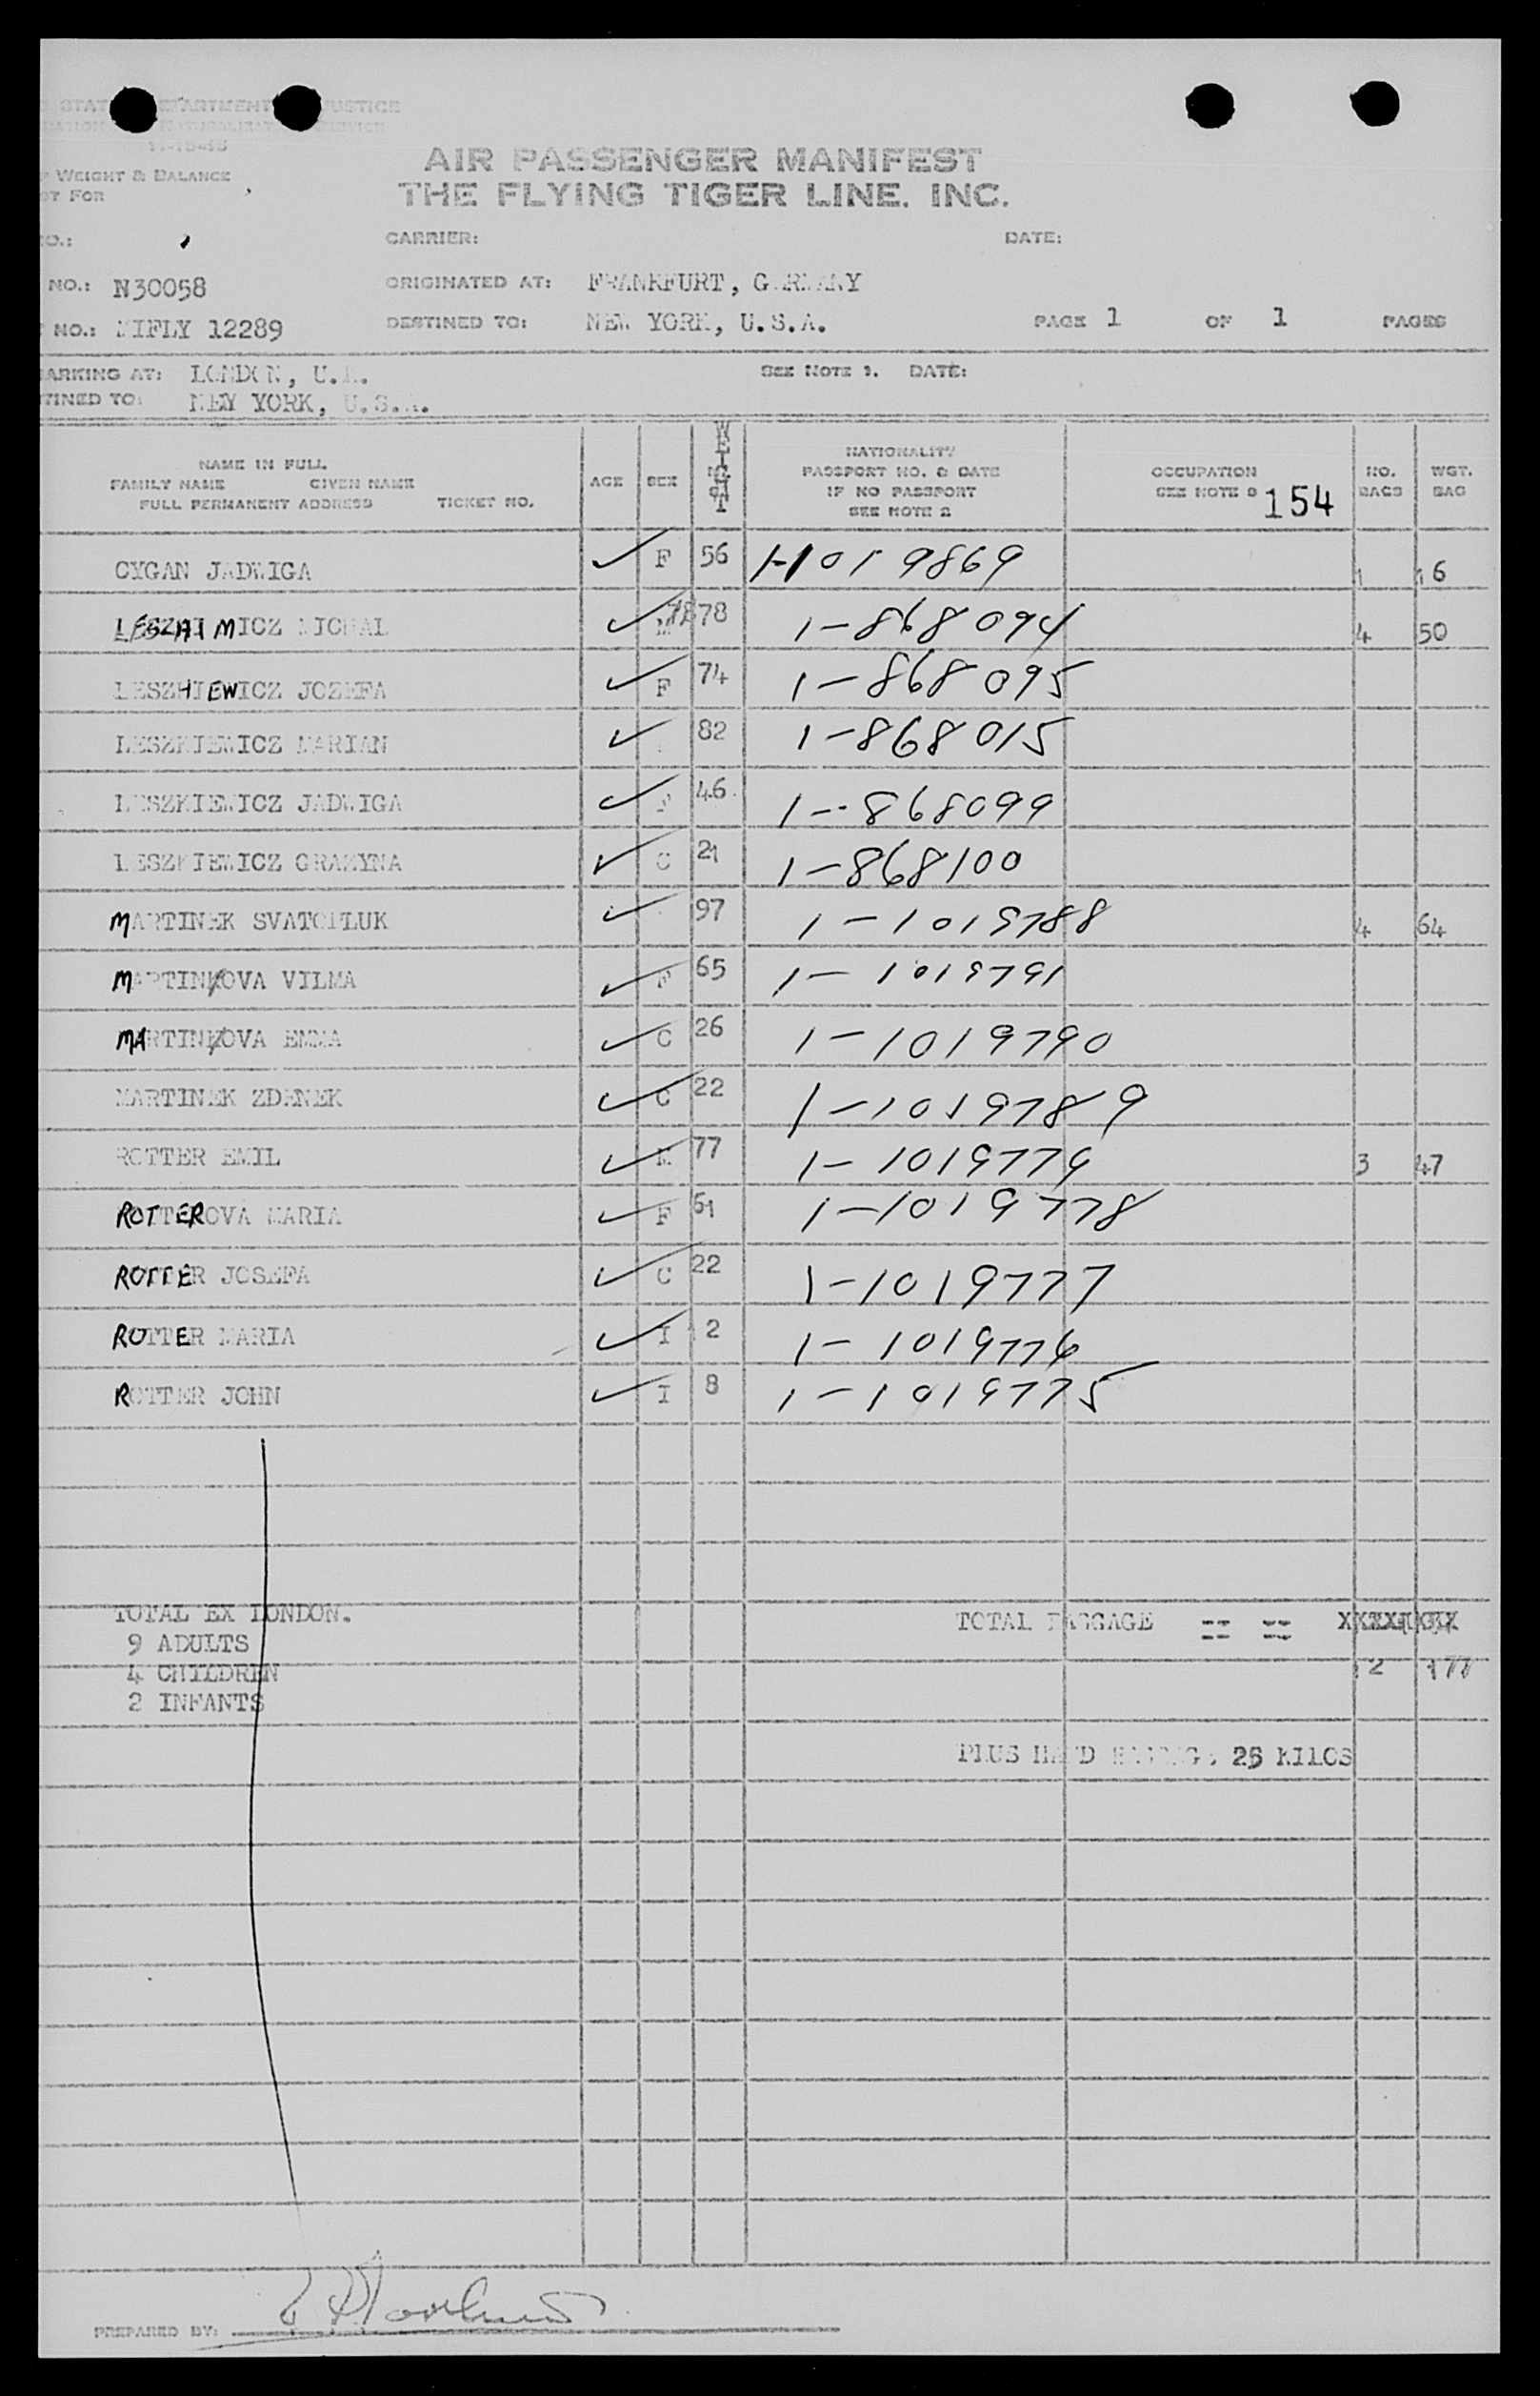 STAT DEPARTMENT JUSTICE
11-15-48
WEIGHT & BALANCE
FOR
AIR PASSENGER MANIFEST
THE FLYING TIGER LINE, INC.
CARRIER: DATE:
NO.: N30058 ORIGINATED AT: FRANKFURT, GERMANY
NO.: MIFLY 12289 DESTINED TO: NEW YORK, U.S.A. PAGE 1 OF 1 PAGES
ARKING AT: LONDON, U.K. SEE NOTE 1. DATE:
TINED TO: NEY YORK, U.S.A.
NAME IN FULL
FAMILY NAME GIVEN NAME
FULL PERMANENT ADDRESS TICKET NO.
AGE SEX WEIGHT
NATIONALITY
PASSPORT NO. & DATE
IF NO PASSPORT
SEE NOTE 2
OCCUPATION
SEE NOTE 154
NO. BAGS WGT. BAG
CYGAN JADWIGA F 56 1-1019869 1 16
LESZAIMICZ MICHAL M 78 78 1-868094 4 50
LESZHIEWICZ JOZEFA F 74 1-868095
LESZKIEWICZ MARIAN 82 1-868015
LESZKIEWICZ JADWIGA F 46 1-868099
LESZKIEWICZ GRAZYNA C 21 1-868100
MARTINEK SVATOPLUK 97 1-1019788 4 64
MARTINKOVA VILMA F 65 1-1019791
MARTINKOVA EMMA C 26 1-1019790
MARTINEK ZDENEK C 22 1-1019789
ROTTER EMIL M 77 1-1019779 3 47
ROTTEROVA MARIA F 61 1-1019778
ROTTER JOSEFA C 22 1-1019777
ROTTER MARIA I 12 1-1019776
ROTTER JOHN I 8 1-1019775
TOTAL EX LONDON. TOTAL BAGGAGE == ==
9 ADULTS
4 CHILDREN 12 177
2 INFANTS
PLUS HAND BAGGAGE 25 KILOS
PREPARED BY: